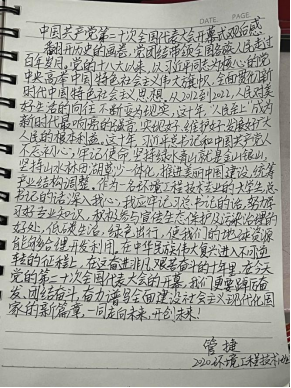 DATE PAGE
中国共产党第二十次全国代表大会开幕式观后感
翻开历史的画卷，党团结带领全国各族人民走过
百年岁月。党的十八大以来，从习近平同志为核心的党
中央高举中国特色社会主义伟大旗帜，全面贯彻新
时代中国特色社会主义思想，从2012到2022，人民对美
好生活的向往不断变为现实，这十年"人民至上"成为
新时代最响亮的强音，实现好、维护好、发展好广大
人民的根本利益。这十年，习近平总书记和中国共产党人
不忘初心，牢记使命，坚持绿水青山就是金山银山，
坚持山水林田湖草沙一体化，推进美丽中国建设，统筹
产业结构调整，作为一名环境工程技术专业的大学生，总
书记的话深入我心，我应牢记习总书记的话，努力学
好专业知识，积极参与宣传生态保护及污染治理的
好处，低碳生活，绿色出行，使我们的地球资源
能够合理开发利用，在中华民族伟大复兴进入不可逆
转的征程上，在这奋进非凡艰苦奋斗的十年里，在今天
党的第二十次全国代表大会的开幕，我们更要踔厉奋
发，团结奋斗，奋力谱写全面建设社会主义现代化国
家的新篇章，一同走向未来，开创未来！
管捷
2020环境工程技术班